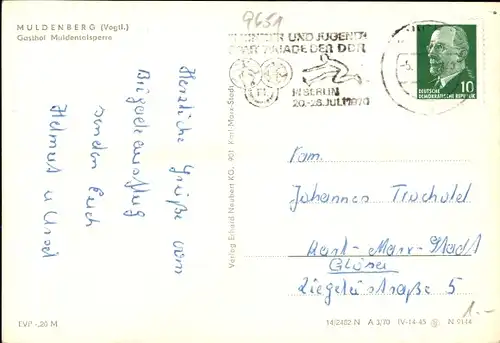 MULDENBERG (Vogtl.)
Gasthof Muldentalsperre
9651
KINDER- UND JUGEND-
SPARTAKIADE DER DDR
IN BERLIN
20.-26. JULI 1970
DEUTSCHE
DEMOKRATISCHE REPUBLIK
10
Herzliche Grüße vom
Brigadeausflug
senden Euch
Helmut u. Ursel
Verlag Erhard Neubert KG, 901 Karl-Marx-Stadt
Fam.
Johannes
Karl-Marx-Stadt
Glösa
Ziegeleistraße 5
1.-
EVP -,20 M
14/2402 N A 3/70 IV-14-45 N 9144